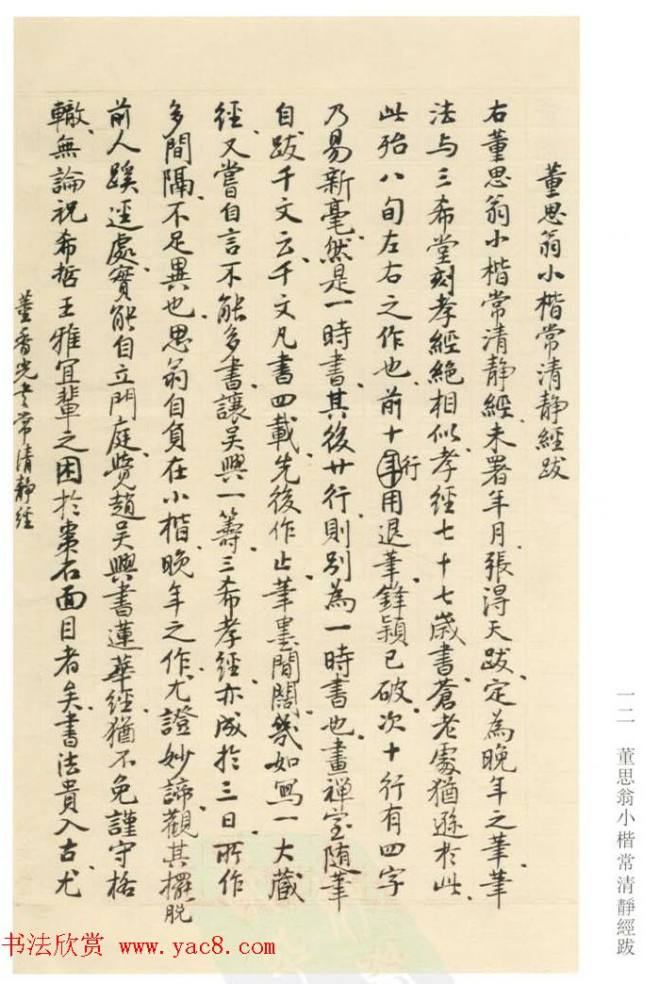 董思翁小楷常清静經跋
右董思翁小楷常清静經、未署年月、張得天跋、定為晚年之筆、筆
法与三希堂刻孝經絶相似、孝經七十七歲書、蒼老處猶遜於此、
此殆八旬左右之作也、前十行用退筆、鋒穎已破、次十行有四字
乃易新毫、然是一時書、其後廿行則別為一時書也、畫禪室随筆
自跋千文云、千文凡書四載、先後作止、筆墨間闊、幾如寫一大藏
經、又嘗自言不能多書、讓吴興一籌、三希孝經、亦成於三日、所作
多間隔、不足異也、思翁自負在小楷、晚年之作、尤證妙諦、觀其擺脱
前人蹊逕處、實能自立門庭、覺趙吴興書蓮華經、猶不免謹守格
轍、無論祝希哲王雅宜輩之困於棗石面目者矣、書法貴入古、尤
董香光書常清静經
一二 董思翁小楷常清靜經跋
书法欣赏 www.yac8.com